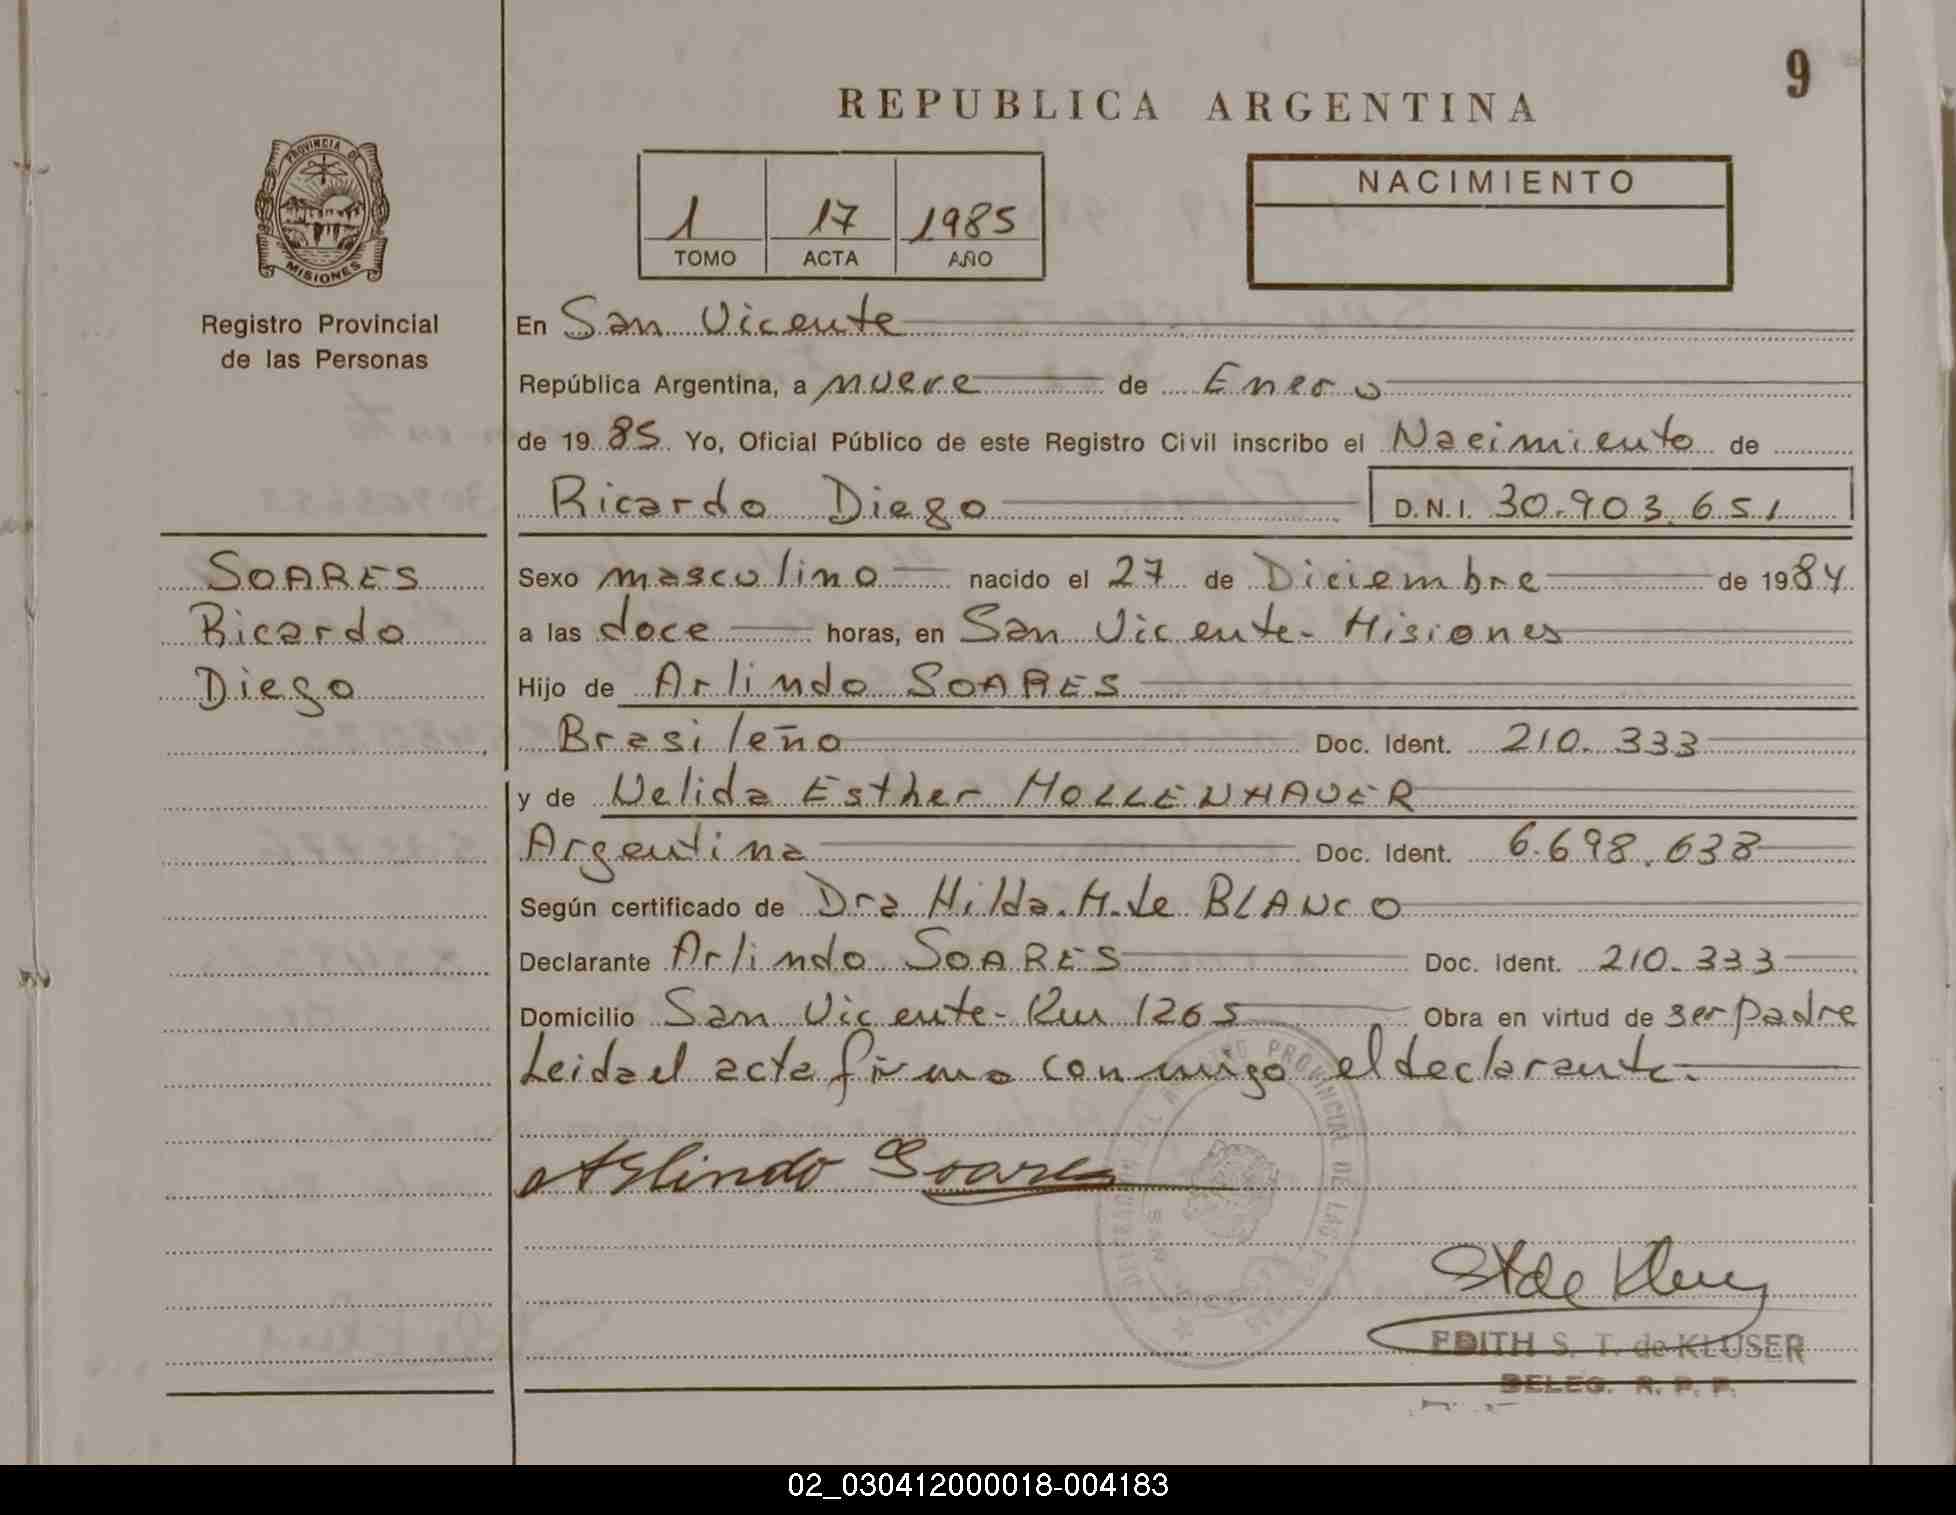 9
REPUBLICA ARGENTINA
PROVINCIA DE
MISIONES
1 17 1985
TOMO ACTA AÑO
NACIMIENTO
Registro Provincial
de las Personas
En San Vicente
República Argentina, a nueve de Enero
de 19 85 Yo, Oficial Público de este Registro Civil inscribo el Nacimiento de
Ricardo Diego D.N.I. 30.903.651
SOARES
Ricardo
Diego
Sexo masculino nacido el 27 de Diciembre de 1984
a las doce horas, en San Vicente- Misiones
Hijo de Arlindo SOARES
Brasileño Doc. Ident. 210.333
y de Nelida Esther MOLLENHAUER
Argentina Doc. Ident. 6.698.638
Según certificado de Dra Hilda.M.de BLANCO
Declarante Arlindo SOARES Doc. Ident. 210.333
Domicilio San Vicente- Km 1265 Obra en virtud de ser padre
Leida el acta firma conmigo el declarante.
Arlindo Soares
PROVINCIAL DE LAS
SAN
EDITH S. T. de KLUSER
DELEG. R. P. P.
02_030412000018-004183